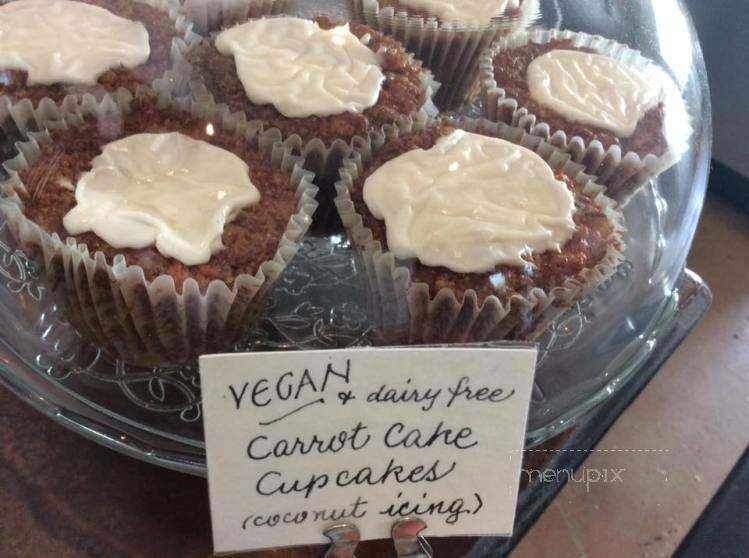 VEGAN & dairy free
Carrot Cake
Cupcakes
(coconut icing)
menupix